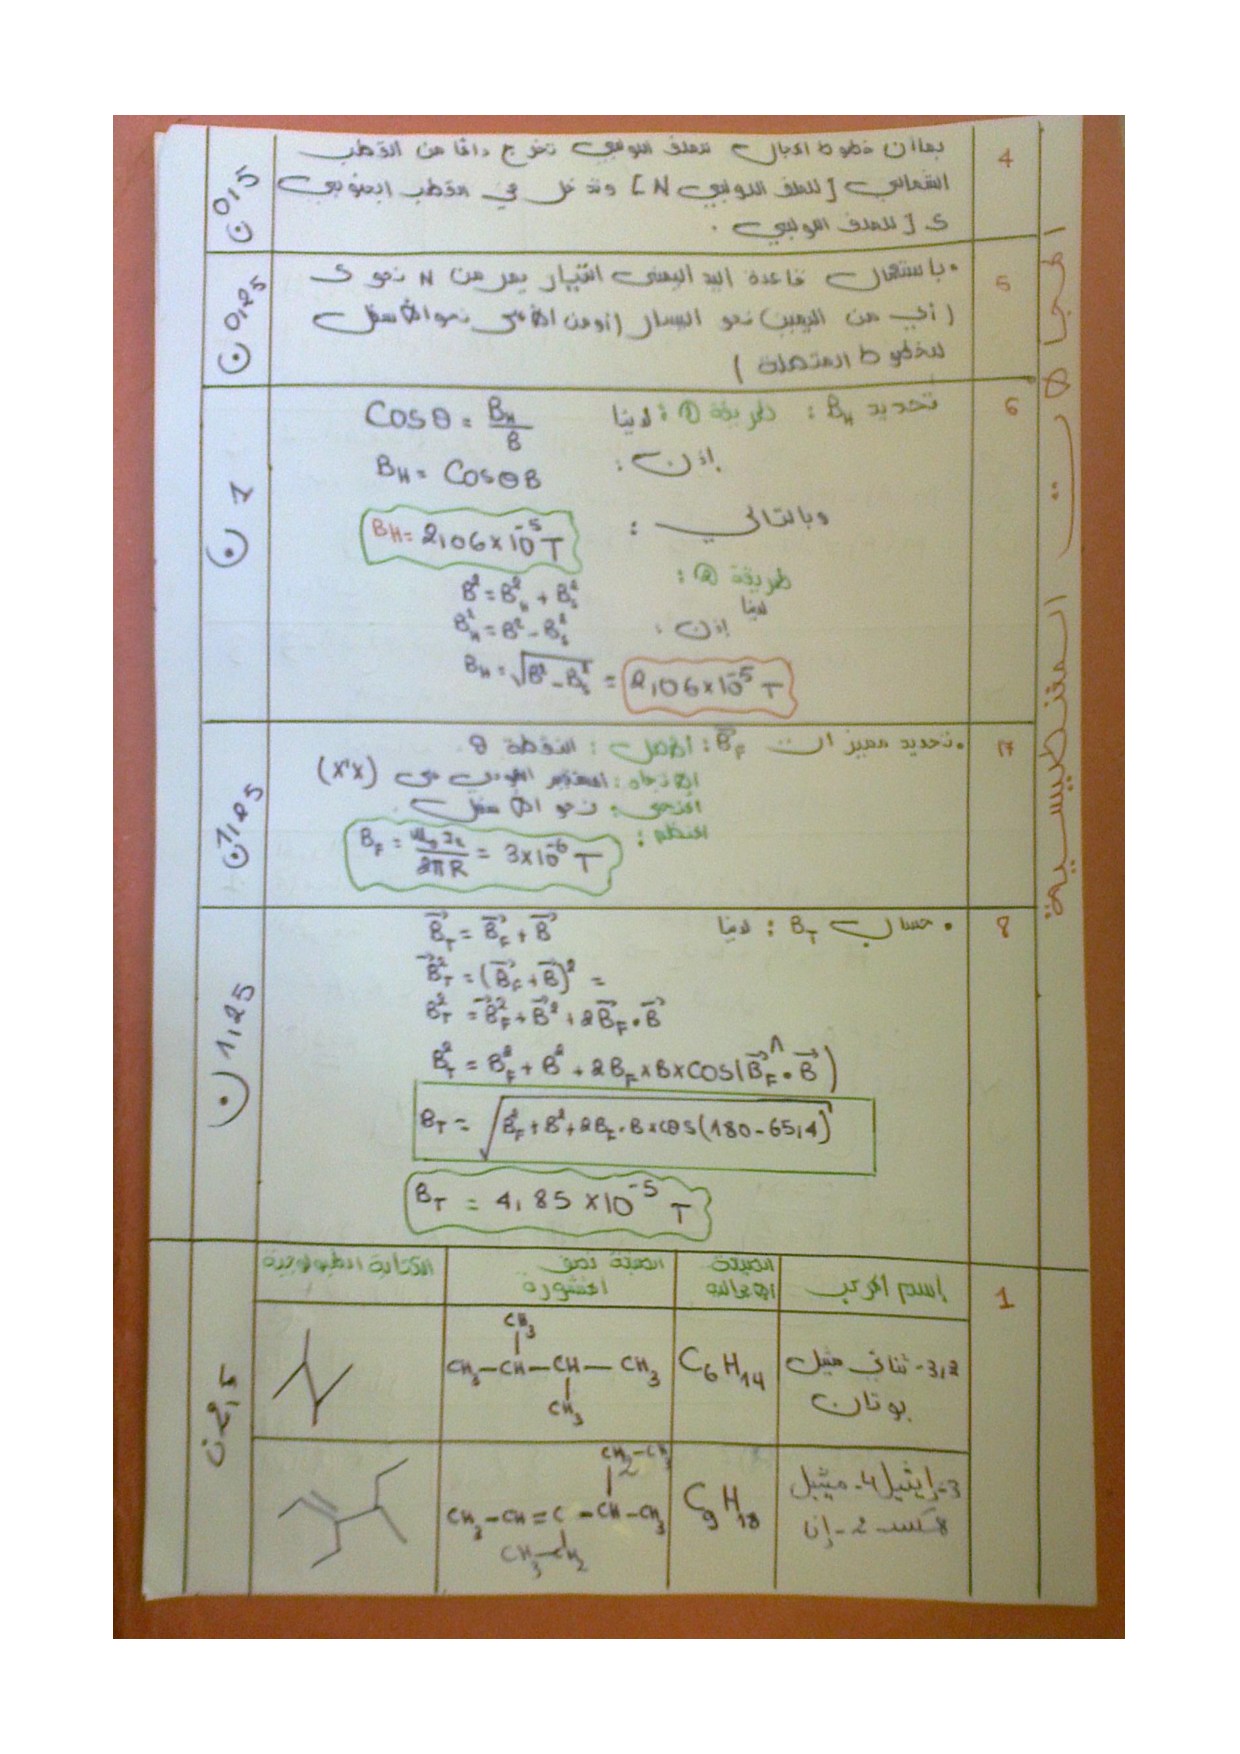 4
بما أن خطوط المجال للملف اللولبي تخرج دائما من القطب
الشمالي [للملف اللولبي N] وتدخل في القطب الجنوبي
S [للملف اللولبي.
0,5 ن
5
• باستعمال قاعدة اليد اليمنى التيار يمر من N نحو S
(أي من اليمين) نحو اليسار (أو من الأعلى نحو الأسفل
للخطوط المتصلة)
0,25 ن
6
تحديد BH : طريقة ① : لدينا Cosθ = BH/B
إذن : BH = CosθB
وبالتالي : BH = 2,06×10⁻⁵ T
طريقة ② :
لدينا B² = B²H + B²S
إذن : B²H = B² - B²S
BH = √(B² - B²S) = 2,06×10⁻⁵ T
1 ن
7
• تحديد مميزات BF : الأصل : النقطة
الاتجاه : (x'x)
المنحى : نحو الأسفل
المنظم : BF = μ0 I2/2πR = 3×10⁻⁶ T
1,25 ن
8
• حساب BT : لدينا BT = BF + B
BT² = (BF + B)² =
BT² = BF² + B² + 2BF • B
BT² = BF² + B² + 2BF × B × cos(BF • B)
BT = √(BF² + B² + 2BF • B × cos(180 - 65,4))
BT = 4,85 ×10⁻⁵ T
1,25 ن
المغنطيسية
1
إسم المركب الصيغة الإجمالية الصيغة نصف المنشورة الكتابة الطبولوجية
3,2 - ثنائي مثيل بوتان C6H14
CH3
CH3-CH-CH-CH3
CH3
3-إيثيل 4- ميثيل
-2-إن C9H18
CH2-CH3
CH3-CH=C-CH-CH3
CH3-CH2